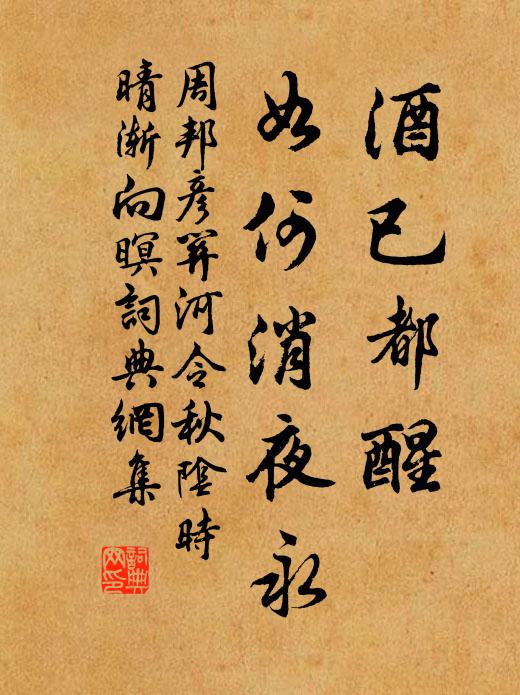 酒已都醒
如何消夜永
周邦彦関河令秋陰時
晴漸向暝詞典網集
詞典
网印